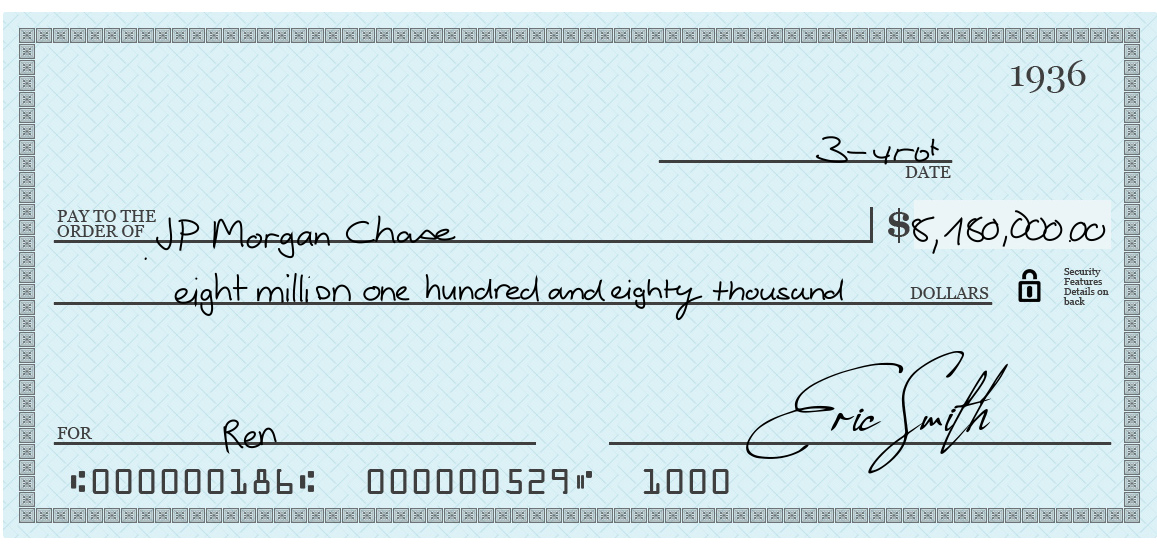 1936
DATE
PAY TO THE
ORDER OF JP Morgan Chase $8,180,000.00
eight million one hundred and eighty thousand DOLLARS
Security
Features
Details on
back
FOR Ren
Eric Smith
⑆000000186⑆ 000000529⑈ 1000